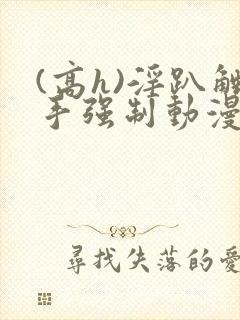 (高h)淫趴觸
手强制動漫
尋找失落的愛